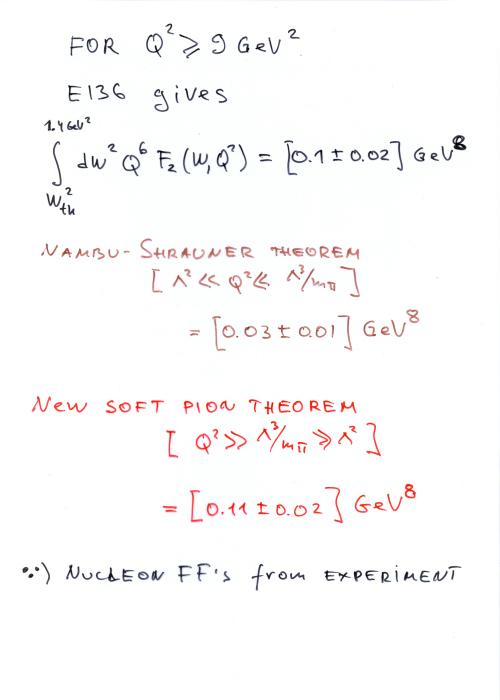 FOR Q² ⩾ 9 GeV²
E136 gives
1.4 GeV²
∫ dW² Q⁶ F₂(W,Q²) = [0.1 ± 0.02] GeV⁸
W²th
NAMBU-SHRAUNER THEOREM
[Λ² << Q² << Λ³/mπ]
= [0.03 ± 0.01] GeV⁸
New SOFT PION THEOREM
[Q² >> Λ³/mπ ⩾ Λ²]
= [0.11 ± 0.02] GeV⁸
∵) NUCLEON FF's from EXPERIMENT